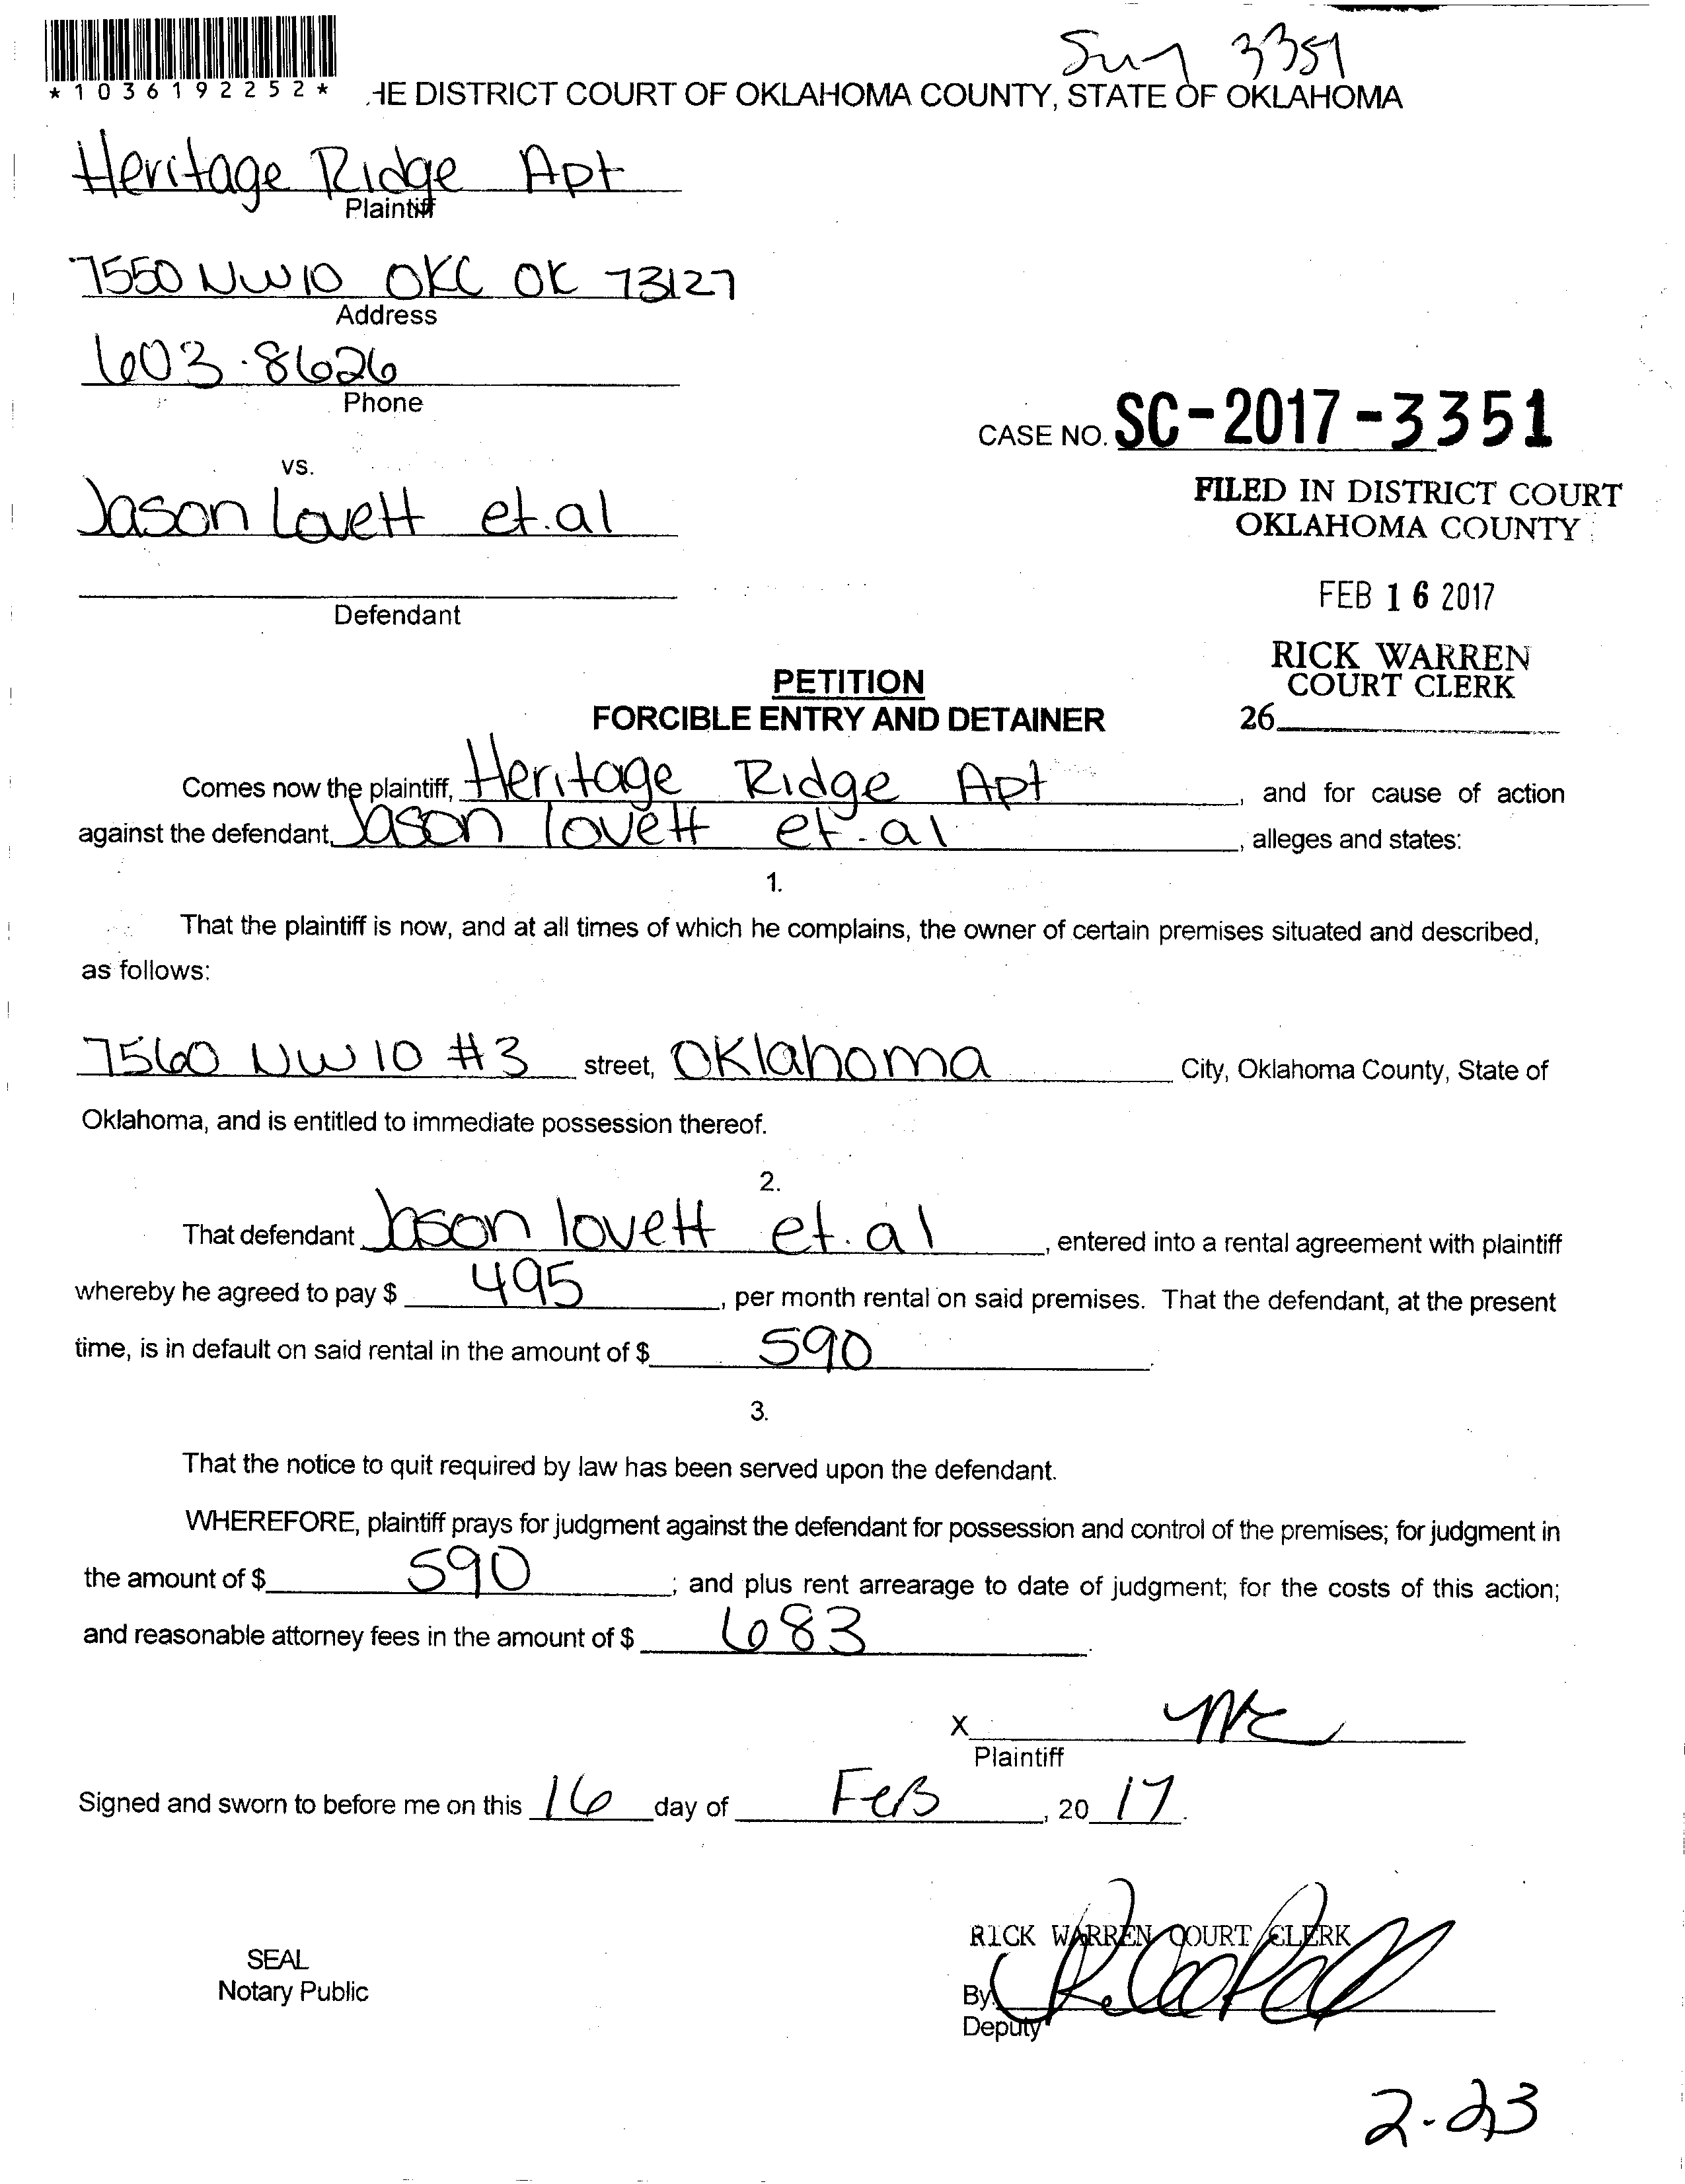 3351
*1036192252*
HE DISTRICT COURT OF OKLAHOMA COUNTY, STATE OF OKLAHOMA
Heritage Ridge Apt
Plaintiff
7550 NW 10 OKC OK 73127
Address
603.8626
Phone
CASE NO. SC-2017-3351
vs.
Jason Lovett et.al
FILED IN DISTRICT COURT
OKLAHOMA COUNTY
FEB 16 2017
Defendant
RICK WARREN
COURT CLERK
26
PETITION
FORCIBLE ENTRY AND DETAINER
Comes now the plaintiff, Heritage Ridge Apt, and for cause of action
against the defendant, Jason lovett et.al, alleges and states:
1.
That the plaintiff is now, and at all times of which he complains, the owner of certain premises situated and described,
as follows:
7560 NW 10 #3 street, Oklahoma City, Oklahoma County, State of
Oklahoma, and is entitled to immediate possession thereof.
2.
That defendant Jason lovett et.al, entered into a rental agreement with plaintiff
whereby he agreed to pay $ 495, per month rental on said premises. That the defendant, at the present
time, is in default on said rental in the amount of $ 590.
3.
That the notice to quit required by law has been served upon the defendant.
WHEREFORE, plaintiff prays for judgment against the defendant for possession and control of the premises; for judgment in
the amount of $ 590; and plus rent arrearage to date of judgment; for the costs of this action;
and reasonable attorney fees in the amount of $ 683.
X
Plaintiff
Signed and sworn to before me on this 16 day of FeB, 20 17.
RICK WARREN COURT CLERK
SEAL
Notary Public
By
Deputy
2-23